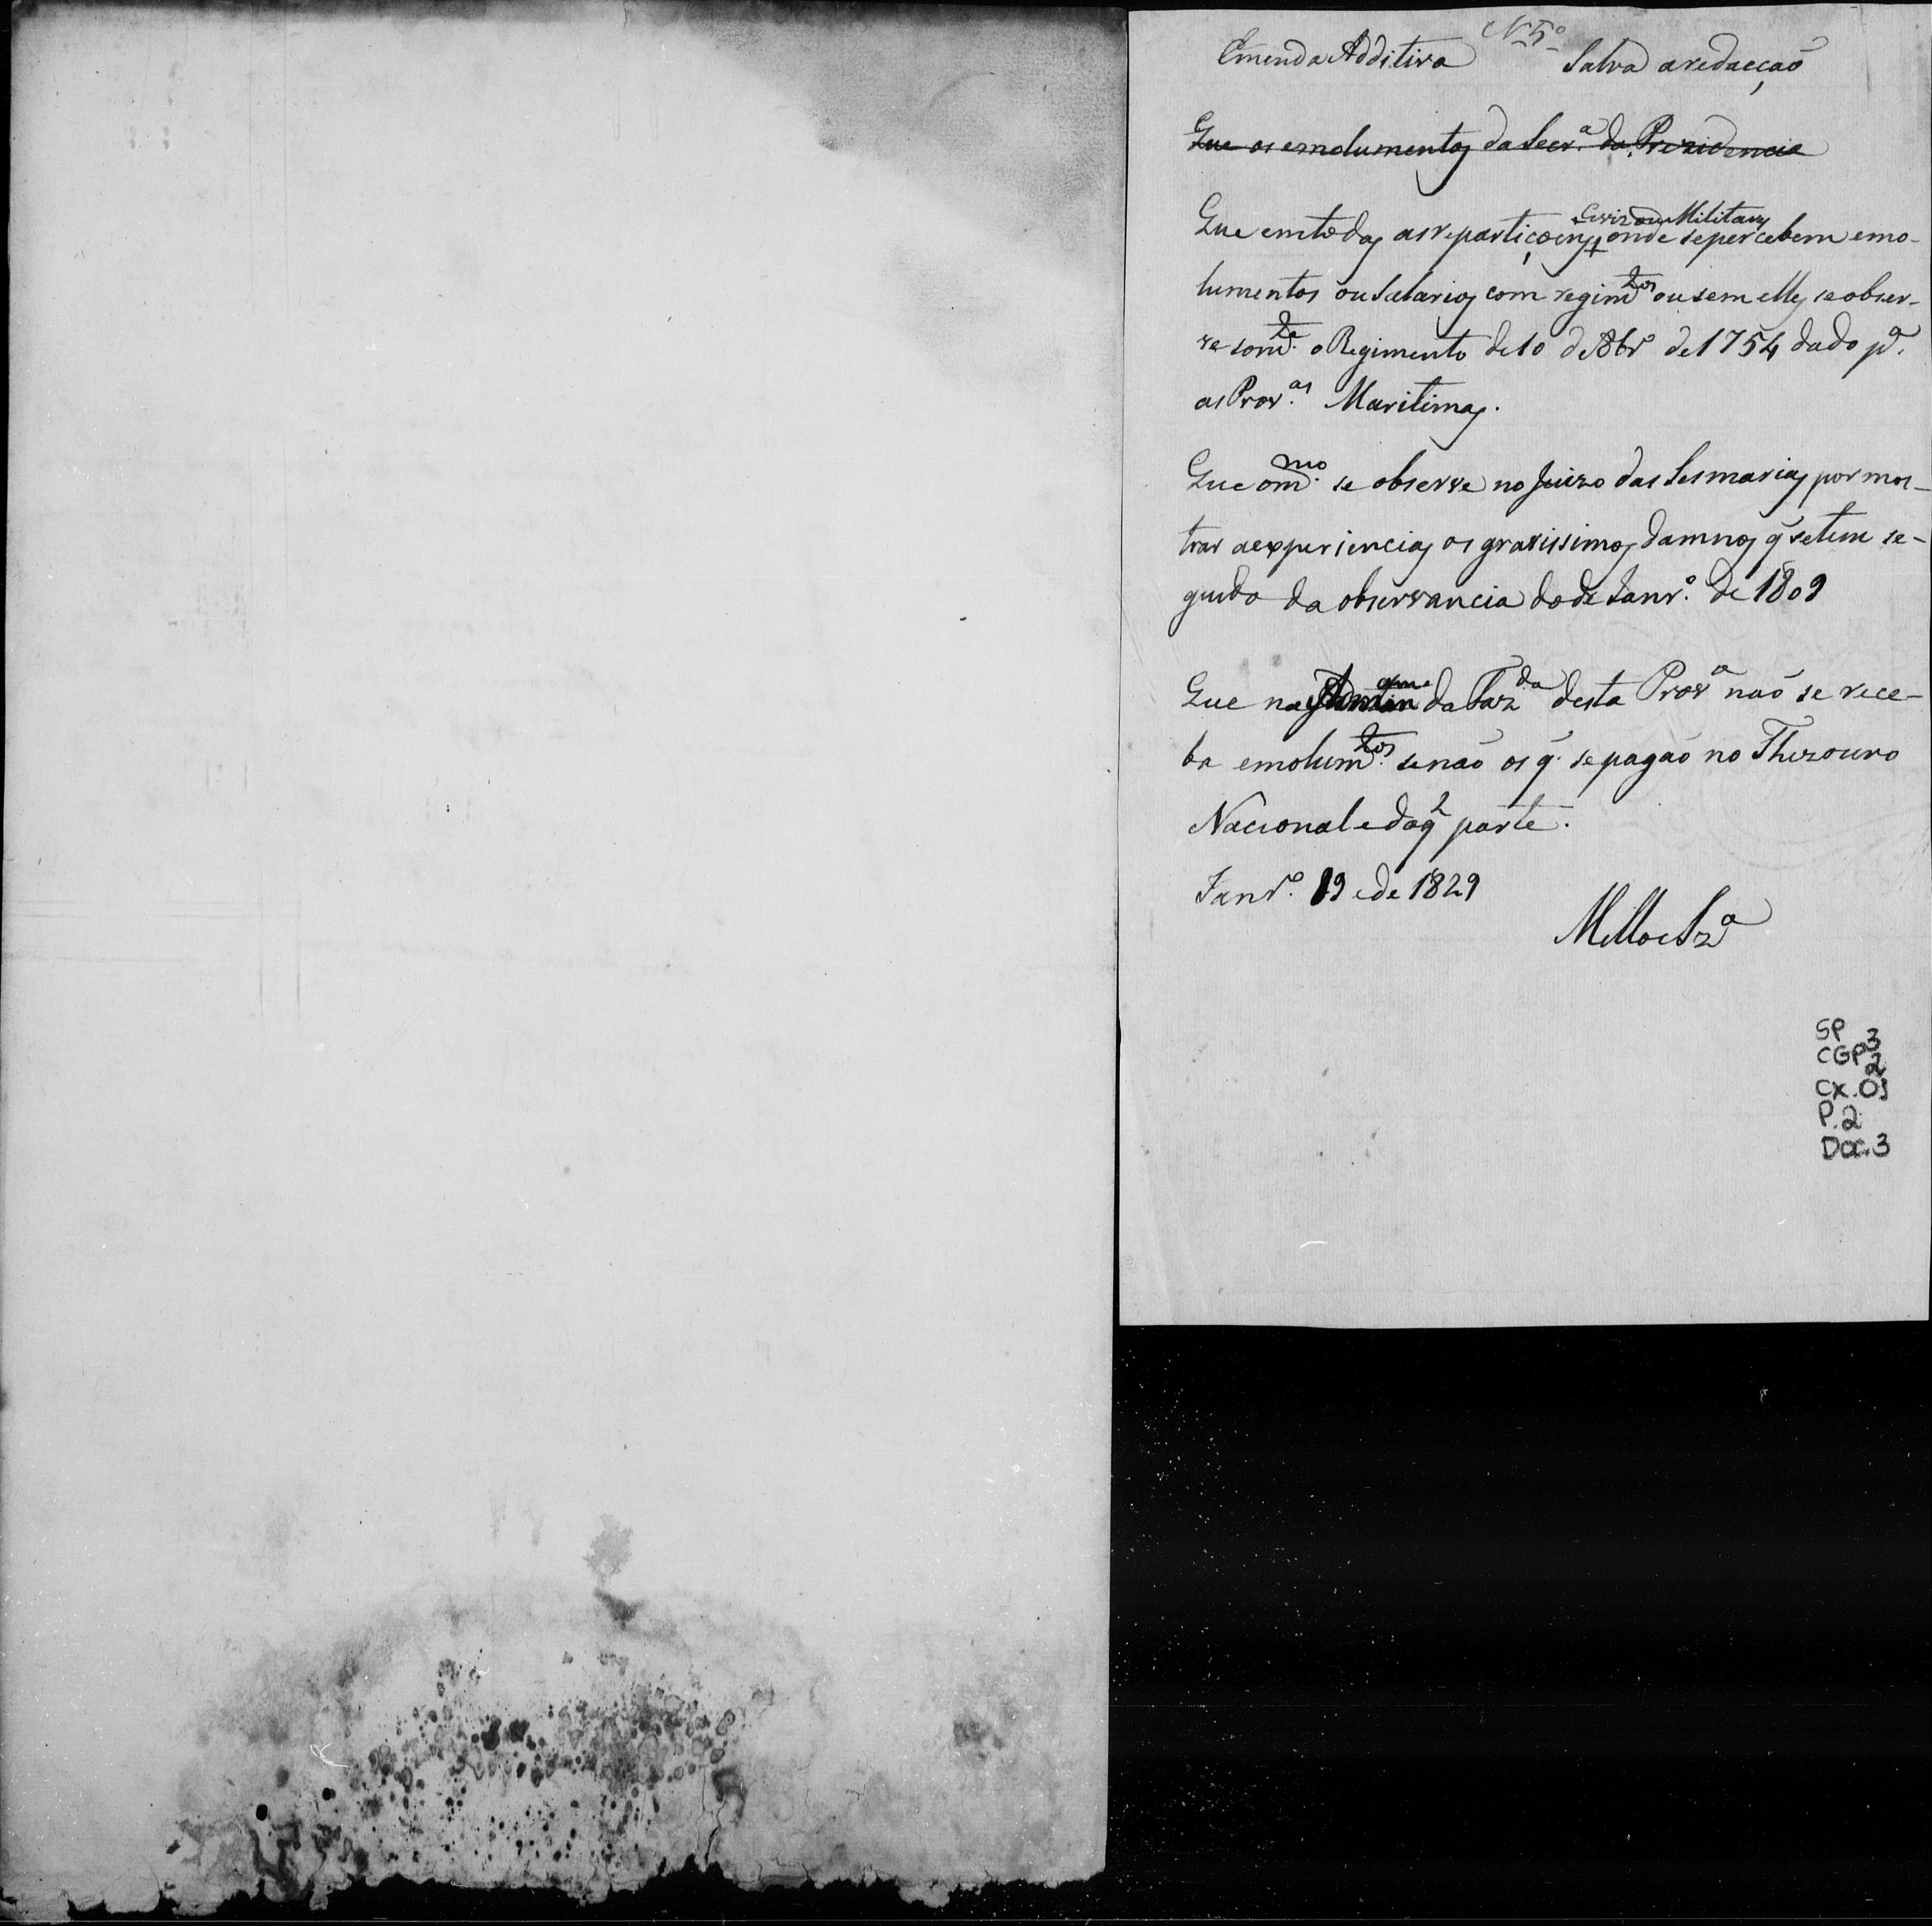 N 5º
Emenda Additiva Salva a redacçaõ
Que os emolumentos da Secr.ª da Prezidencia
Civiz ou Militares
Que em todas as repartiçoens + onde se percebem emo-
lumentos ou salarios com regim.tos ou sem elles se obser-
ve som.te o Regimento de 10 de 8br.º de 1754 dado p.ª
as Prov.as Maritimas.
Que o m.mo se observe no Juizo das Sesmarias por mos-
trar a experiencia os gravissimos damnos q̃ se tem se-
guido da observancia do de Janr.º de 1809
Que na da Faz.da desta Prov.ª naõ se rece-
ba emolum.tos senaõ os q. se pagaõ no Thezouro
Nacional e daq.l parte.
Janr.º 19 e de 1829
Mello e Sz.ª
SP
CGP3
2
CX.05
P.2
Doc.3